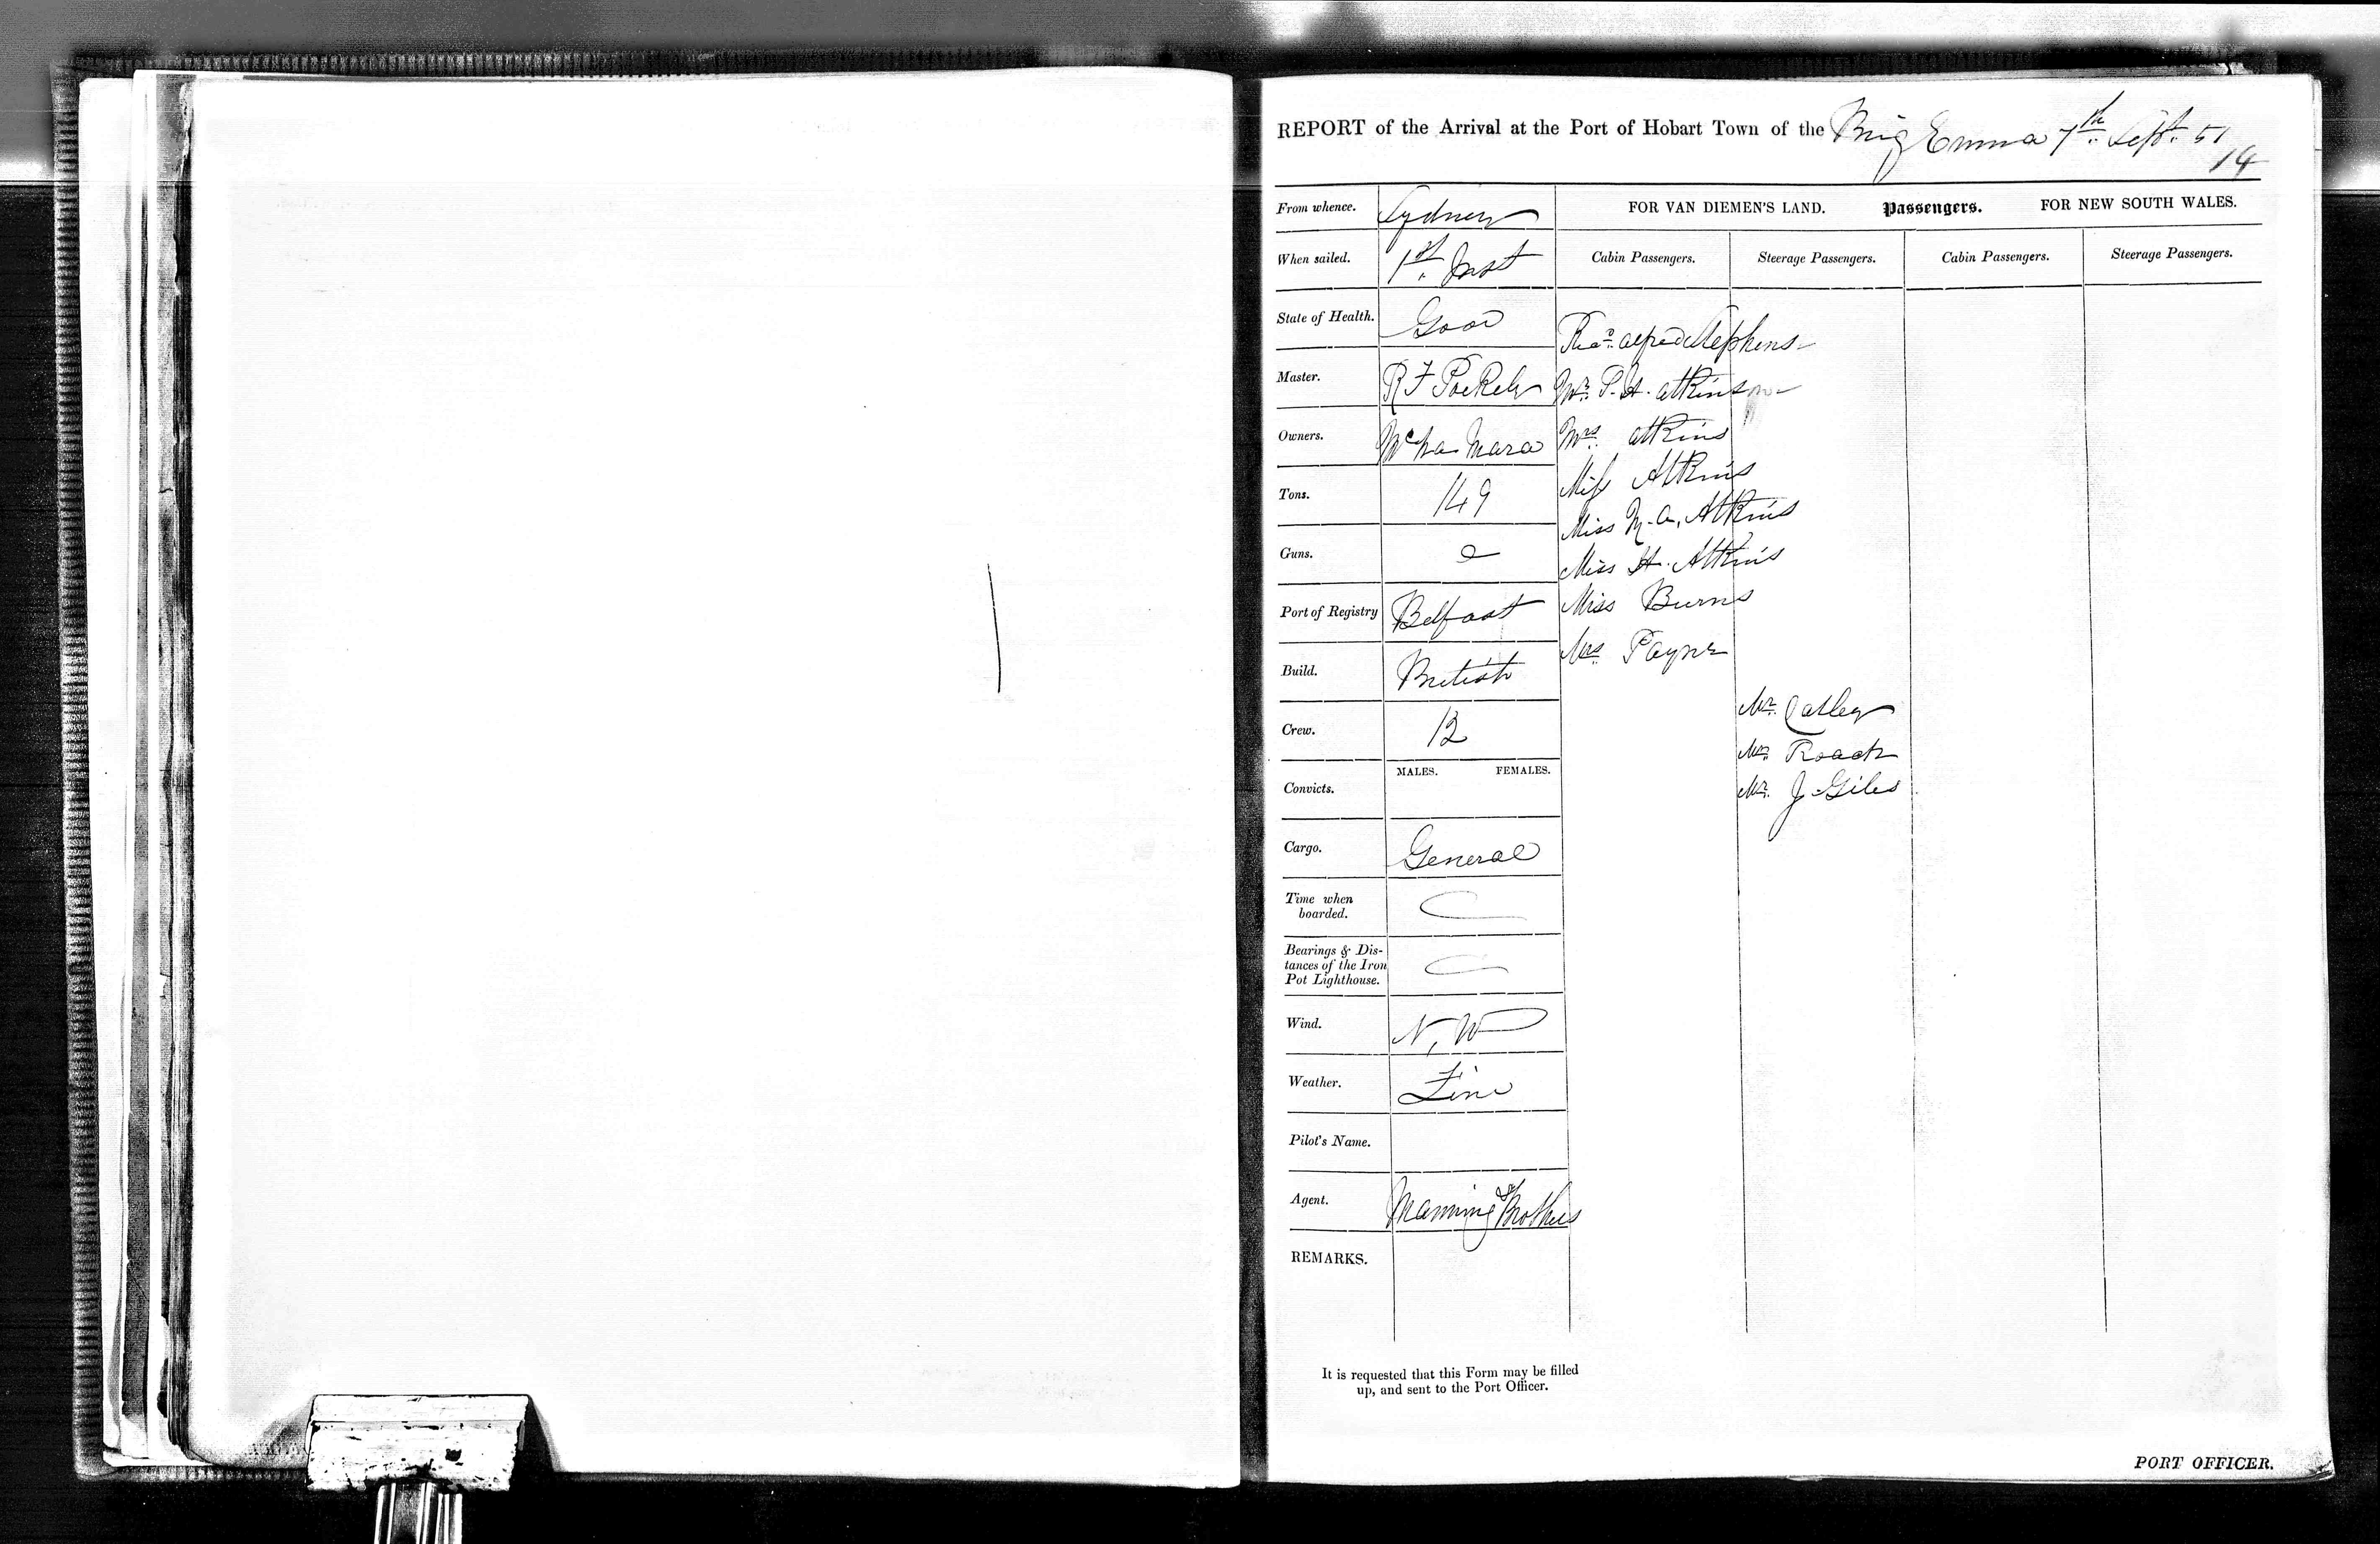 REPORT of the Arrival at the Port of Hobart Town of the Brig Emma 7th Sept. 51
14
From whence. Sydney
FOR VAN DIEMEN'S LAND. Passengers. FOR NEW SOUTH WALES.
When sailed. 1st Inst
Cabin Passengers. Steerage Passengers. Cabin Passengers. Steerage Passengers.
State of Health. Good
Alfred Stephens
Master. R F Pockley
Mr. P. H. Atkinson
Owners. McNamara
Mrs. Atkins
Tons. 149
Miss Atkins
Miss M. A. Atkins
Guns.
Miss H. Atkins
Port of Registry Belfast
Miss Burns
Build. British
Mrs Payne
Crew. 12
Mr. Catley
Mr. Roach
Convicts. MALES. FEMALES.
Mr. J Giles
Cargo. General
Time when
boarded.
Bearings & Dis-
tances of the Iron
Pot Lighthouse.
Wind. N, W
Weather. Fine
Pilot's Name.
Agent. Manning & Brothers
REMARKS.
It is requested that this Form may be filled
up, and sent to the Port Officer.
PORT OFFICER.